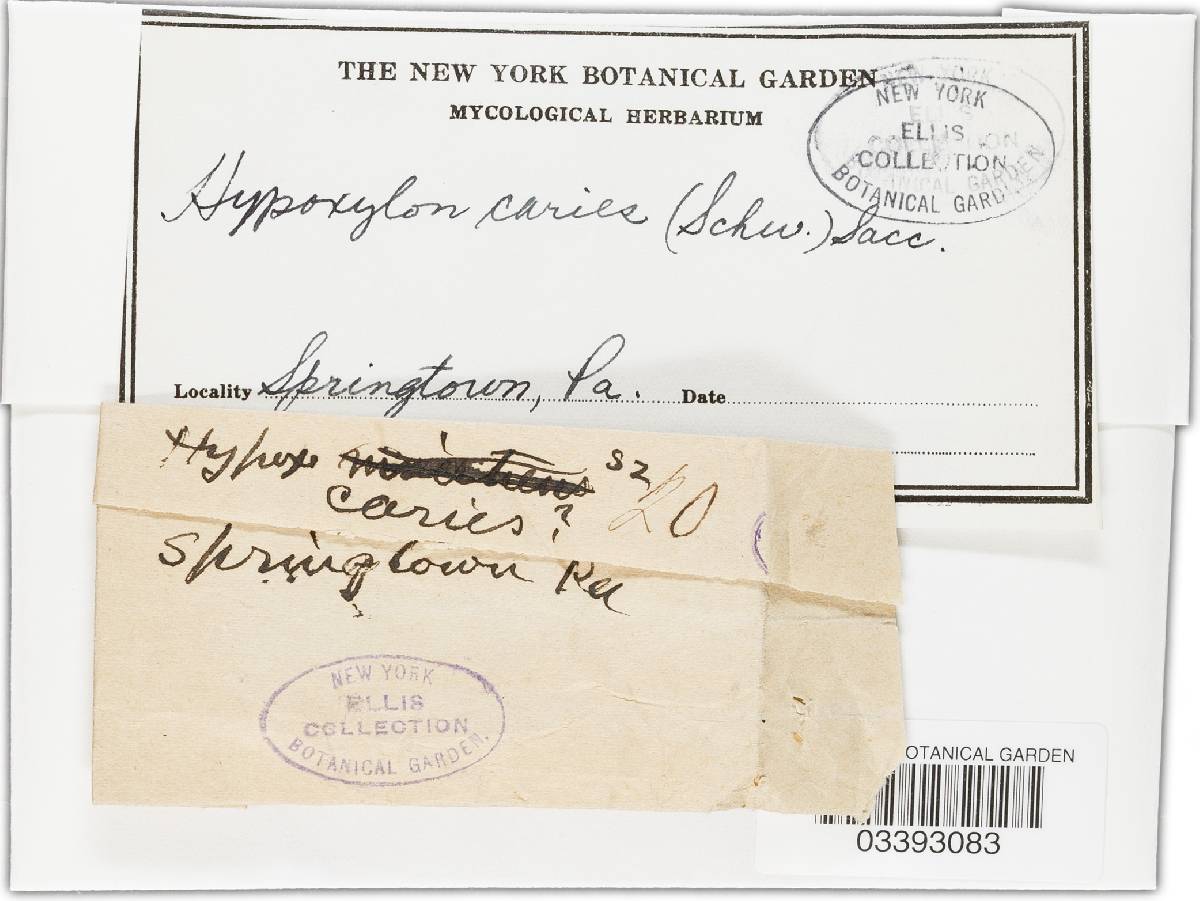 THE NEW YORK BOTANICAL GARDEN
MYCOLOGICAL HERBARIUM
NEW YORK
ELLIS
COLLECTION
BOTANICAL GARDEN
Hypoxylon caries (Schw.) Sacc.
Locality Springtown, Pa. Date
Hypox
Sz
caries?
20
Springtown Pa
NEW YORK
ELLIS
COLLECTION
BOTANICAL GARDEN.
OTANICAL GARDEN
03393083